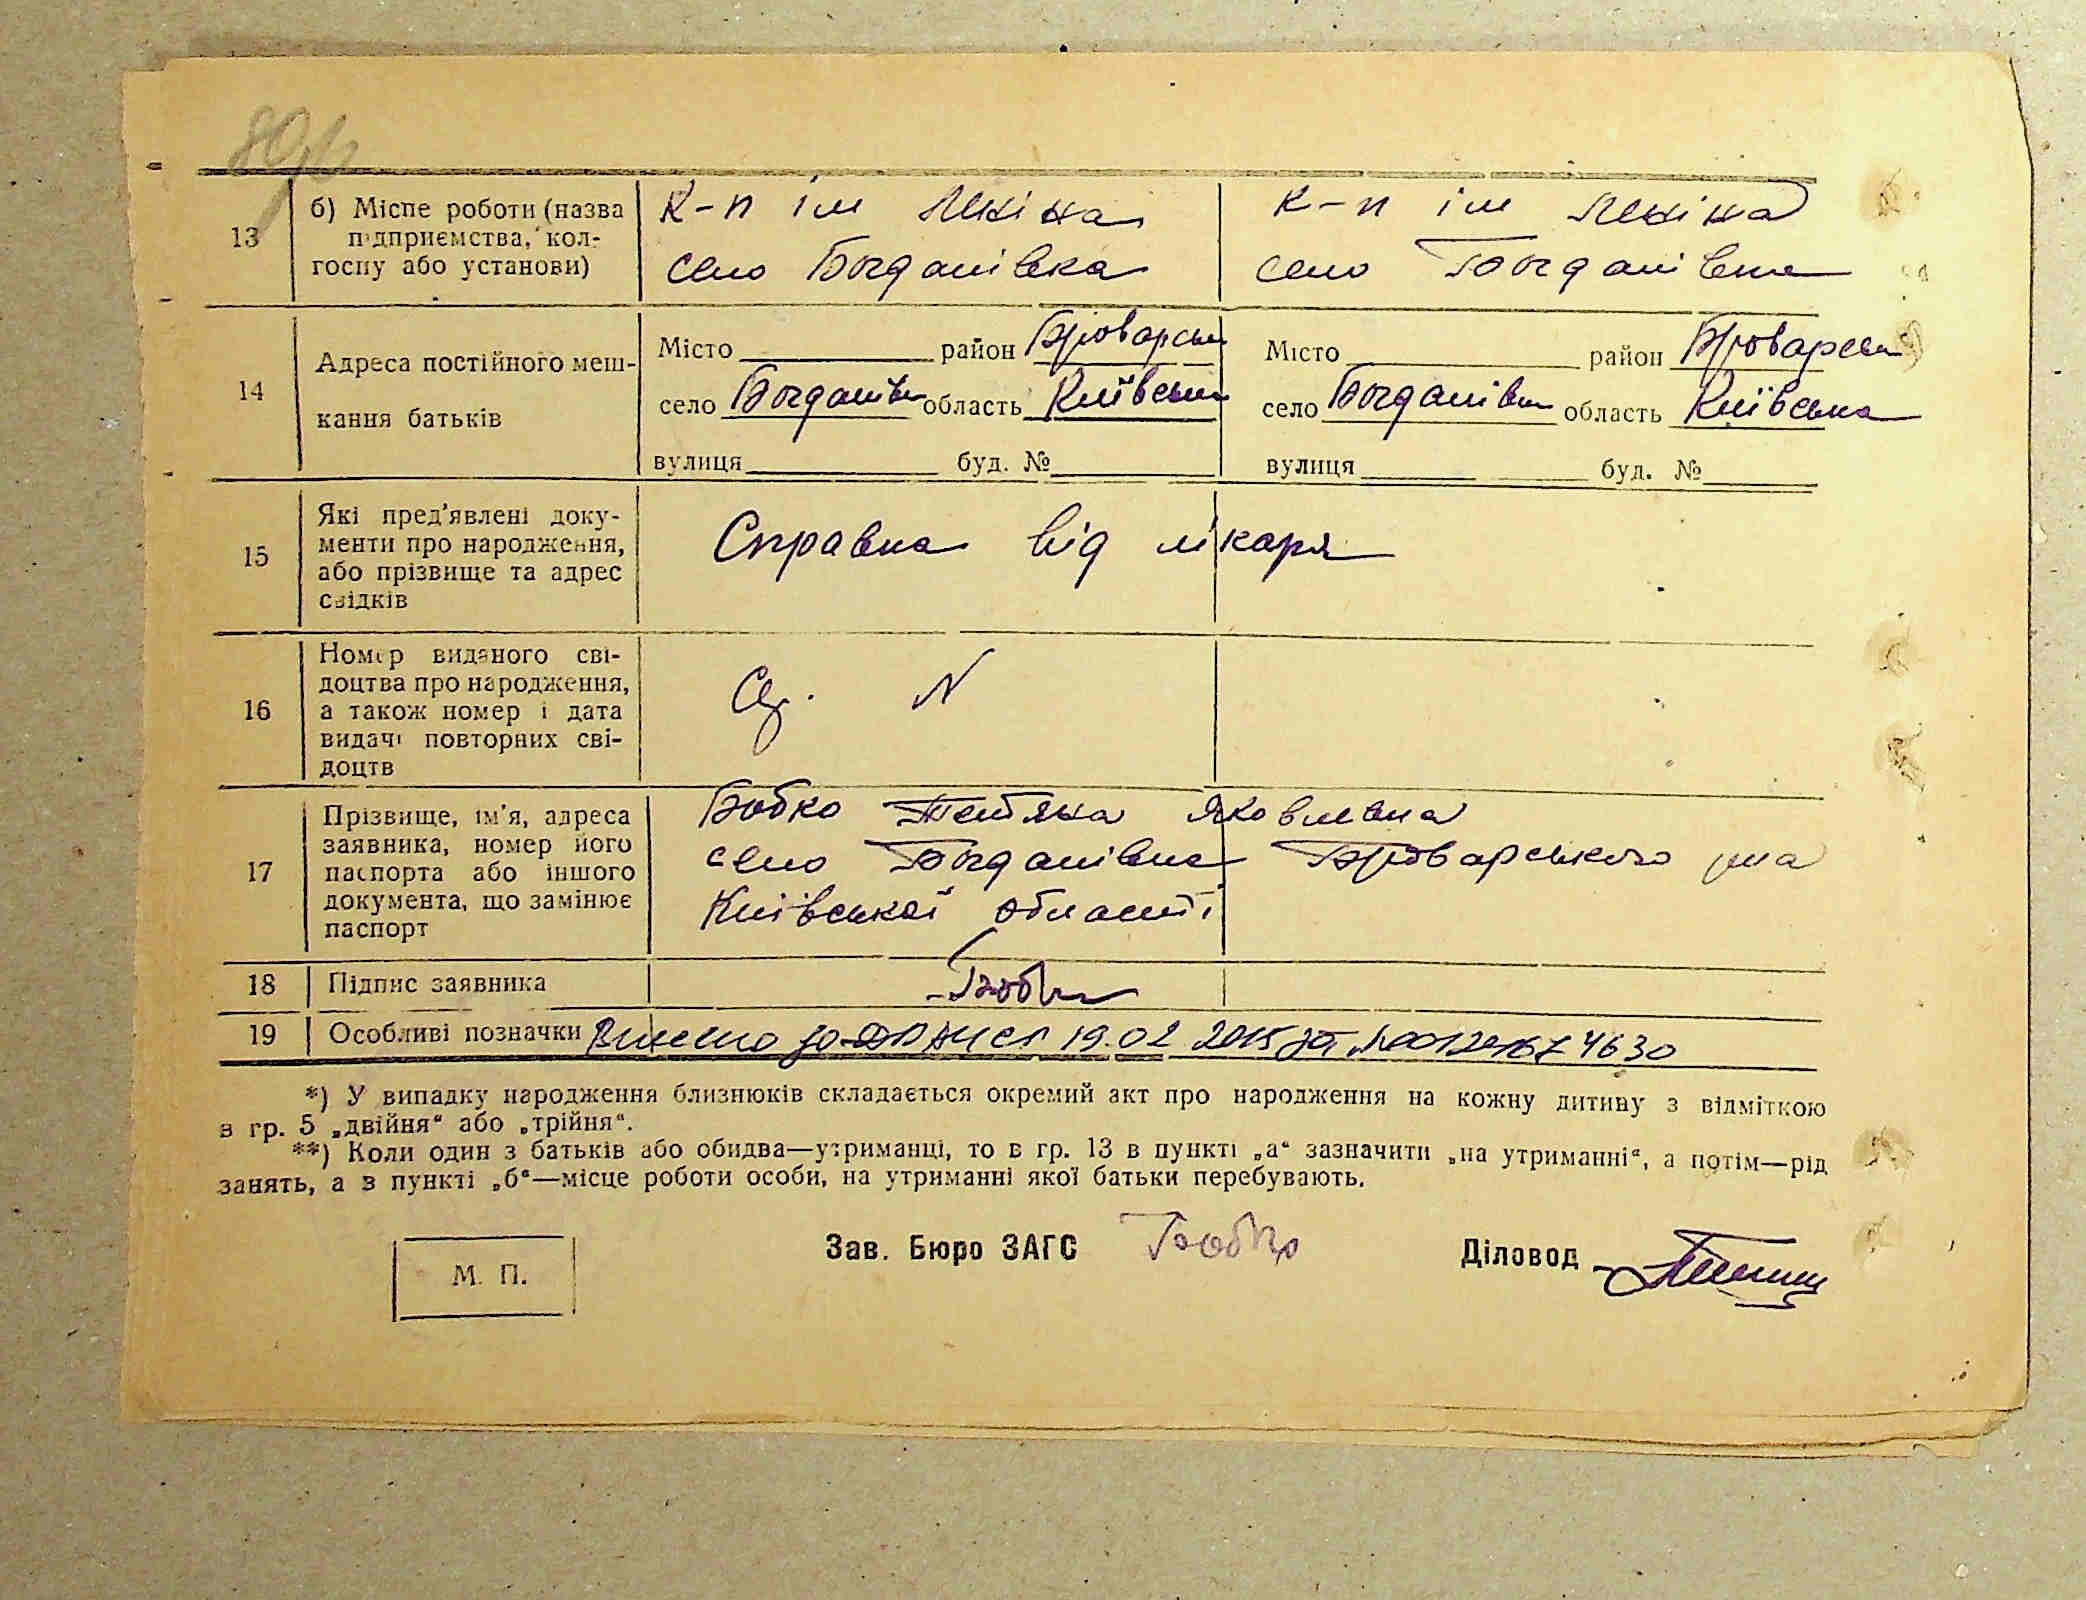 13
б) Місце роботи (назва підприємства, колгоспу або установи)
к-п ім Леніна
село Богданівка
к-п ім Леніна
село Богданівка
14
Адреса постійного мешкання батьків
Місто район Броварськ
село Богданівк область Київськ
вулиця буд. №
Місто район Броварськ
село Богданівк область Київська
вулиця буд. №
15
Які пред'явлені документи про народження, або прізвище та адрес свідків
Справка від лікаря
16
Номер виданого свідоцтва про народження, а також номер і дата видачі повторних свідоцтв
N
17
Прізвище, ім'я, адреса заявника, номер його паспорта або іншого документа, що замінює паспорт
Бобко Тетяна Яковлевна
село Богданівка Броварського р-на
Київської області
18
Підпис заявника
19
Особливі позначки Внесено до ДРАЦСГ 19.02 2015 за №00129167 4630
*) У випадку народження близнюків складається окремий акт про народження на кожну дитину з відміткою
в гр. 5 „двійня“ або „трійня“.
**) Коли один з батьків або обидва—утриманці, то в гр. 13 в пункті „а“ зазначити „на утриманні“, а потім—рід
занять, а в пункті „б“—місце роботи особи, на утриманні якої батьки перебувають.
М. П.
Зав. Бюро ЗАГС Бобко
Діловод